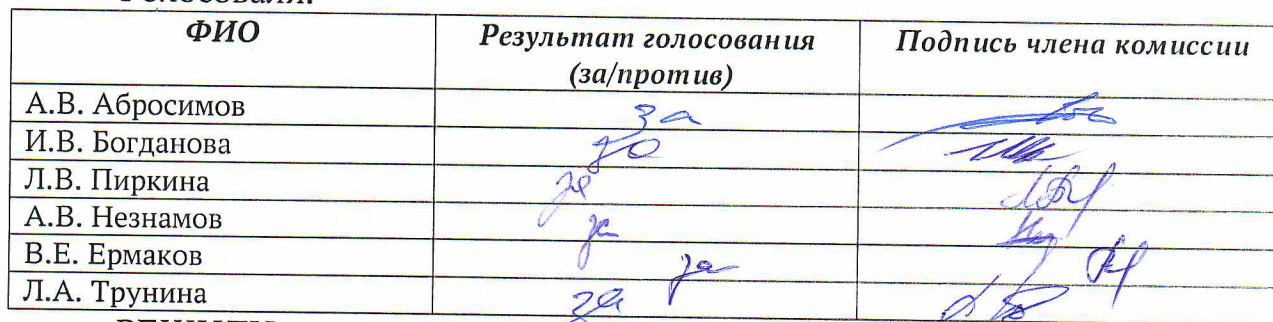 Голосовали:
ФИО Результат голосования Подпись члена комиссии
(за/против)
А.В. Абросимов за
И.В. Богданова за
Л.В. Пиркина за
А.В. Незнамов за
В.Е. Ермаков за
Л.А. Трунина за